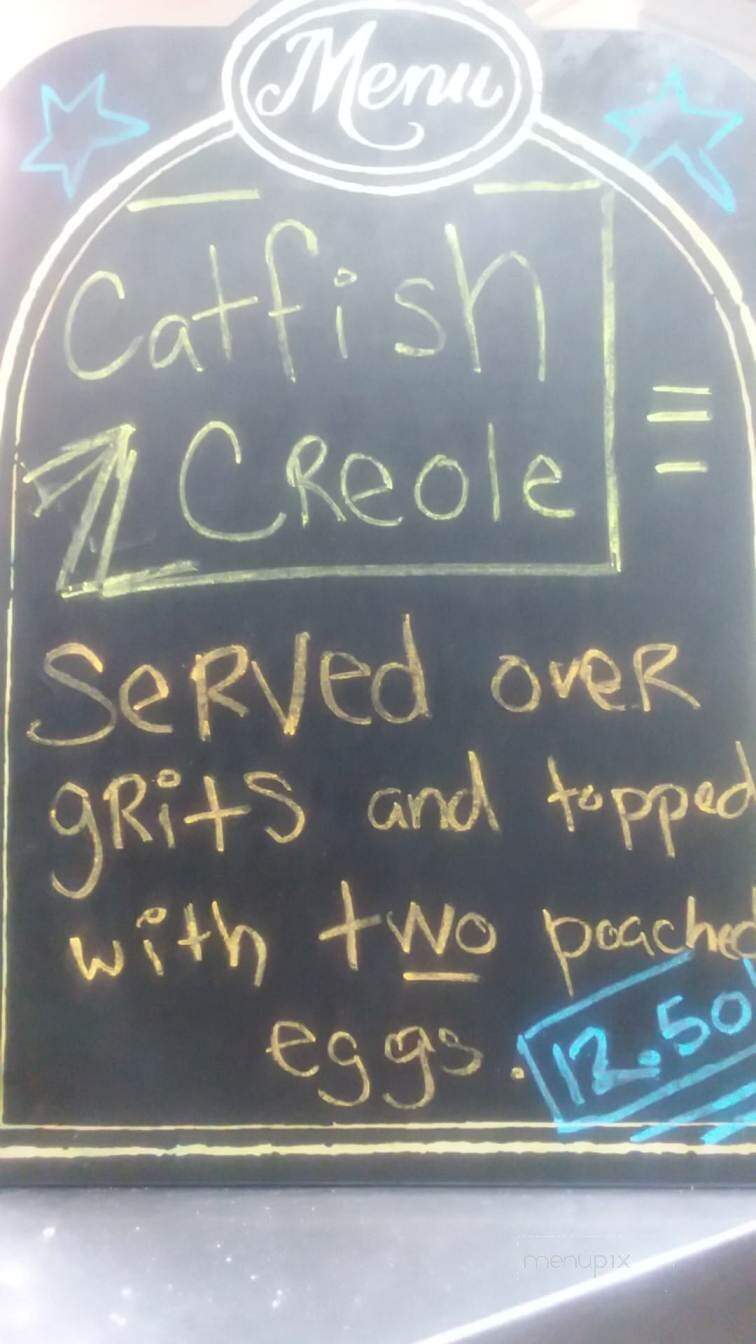 Menu
Catfish
Creole
Served over
grits and topped
with two poached
eggs.
12.50
menupix